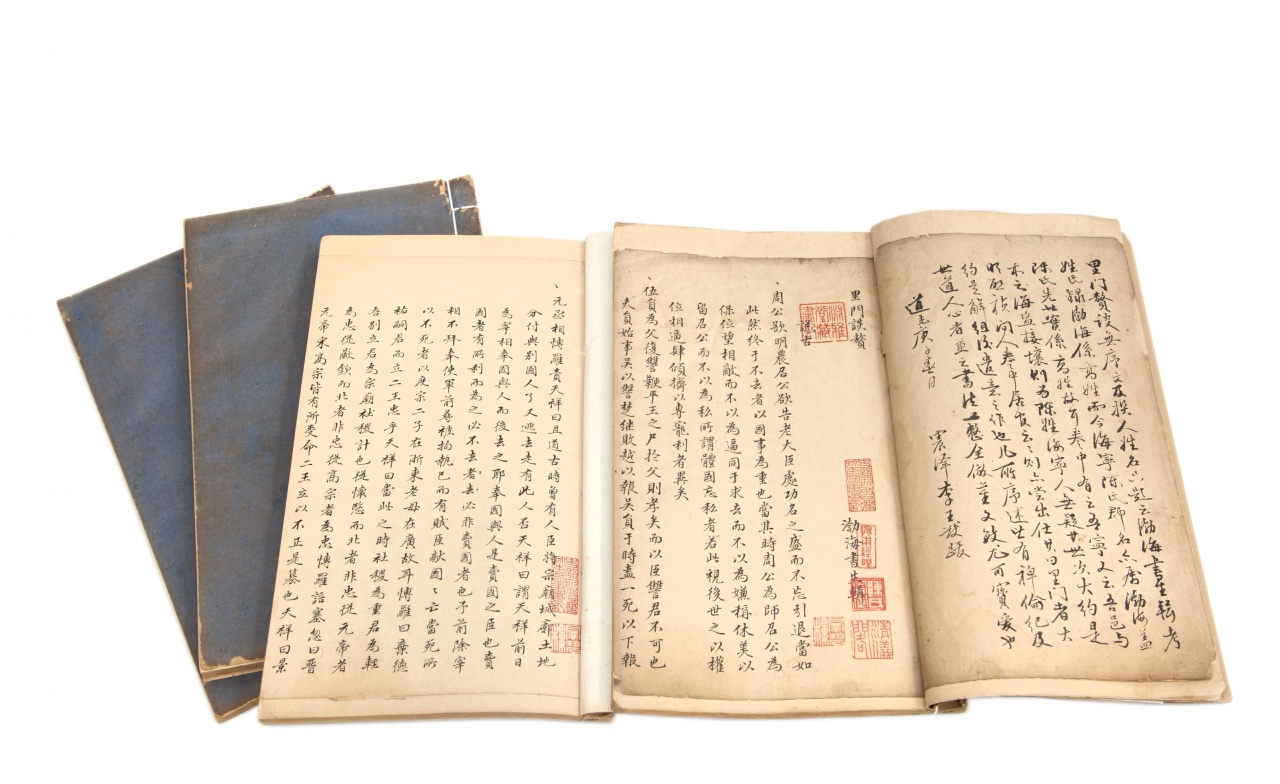 里門贅談無序文及撰人姓名只題云渤海書生輯考
姓氏錄渤海係高姓而今海寧陳氏郡名亦屬渤海蓋
陳氏先世實係高姓故耳卷中有云吾寧又云吾邑與
海鹽接壤則為陳姓海寧人無疑其世次大約是
明啟禎間人卷中居官云云則亦嘗出仕其曰里門者大
約是解組後遺意之作也凡所序述世有裨倫紀及
世道人心者並云書法工整全倣董文敏尤可寶愛也
道光庚子春日 震澤李王跋
里門談贅
談古 渤海書生輯
、周公欲明農召公欲告老大臣處功名之盛而不忘引退當如
此然終于不去者以國事為重也當其時周公為師召公為
保位望相敵而不以為逼同于求去而不以為嫌稱休美以
留召公而不以為私所謂體國忘私者若此視後世之以權
位相逼肆傾擠以專寵利者異矣
、伍員為父復讐鞭平王之尸於父則孝矣而以臣讐君不可也
夫員始事吳以讐楚继敗越以報吳員于時盡一死以下報
、元丞相愽羅責天祥曰且道古時曾有人臣将宗廟城郭土地
分付與别國人了又逃去走有此人否天祥曰謂天祥前日
為宰相奉國與人而後去之耶奉國與人是賣國之臣也賣
國者有所利而為之必不去去者必非賣國者也予前除宰
相不拜奉使軍前尋被拘執已而有賊臣献國國亡當死所
以不死者以度宗二子在浙東老母在廣故耳愽羅曰棄德
祐嗣君而立二王忠乎天祥曰當此之時社稷為重君為輕
吾别立君為宗廟社稷計也従懐愍而北者非忠従元帝者
為忠従徽欽而北者非忠從高宗者為忠愽羅語塞忽曰晋
元帝宋高宗皆有所受命二王立以不正是簒也天祥曰景